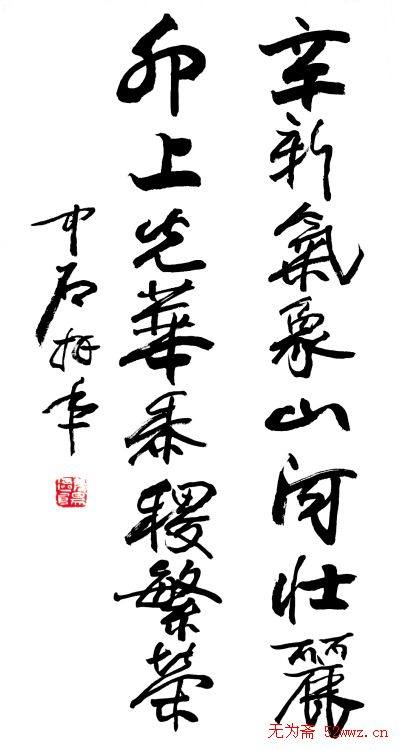 辛新氣象山河壮麗
卯上光華黍稷繁榮
中石拜年
无为斋 52wwz.cn